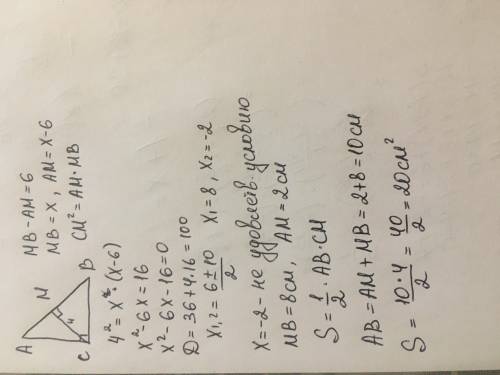 A
M
4
C
B
MB-AM=6
MB=x, AM=x-6
CM²=AM·MB
4²=x·(x-6)
x²-6x=16
x²-6x-16=0
D=36+4·16=100
x₁,₂=(6±10)/2 x₁=8, x₂=-2
x=-2-не удовлетв. условию
MB=8см, AM=2см
S=1/2·AB·CM
AB=AM+MB=2+8=10см
S=(10·4)/2=40/2=20см²